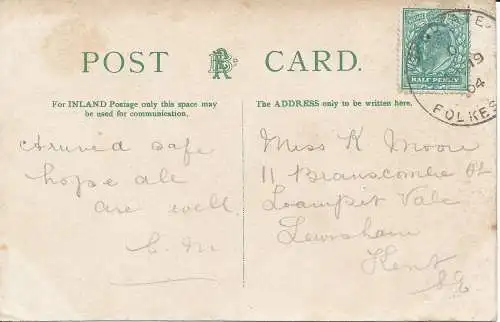 POST CARD.
For INLAND Postage only this space may
be used for communication.
The ADDRESS only to be written here.
HALF PENNY
19
04
FOLKES
Arrived safe
hope all
are well.
E. M
Miss K Moore
11 Branscombe Pl
Loampit Vale
Lewisham
Kent
S.E